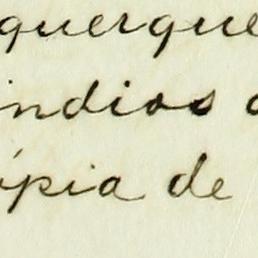 querque
indios
ópia de